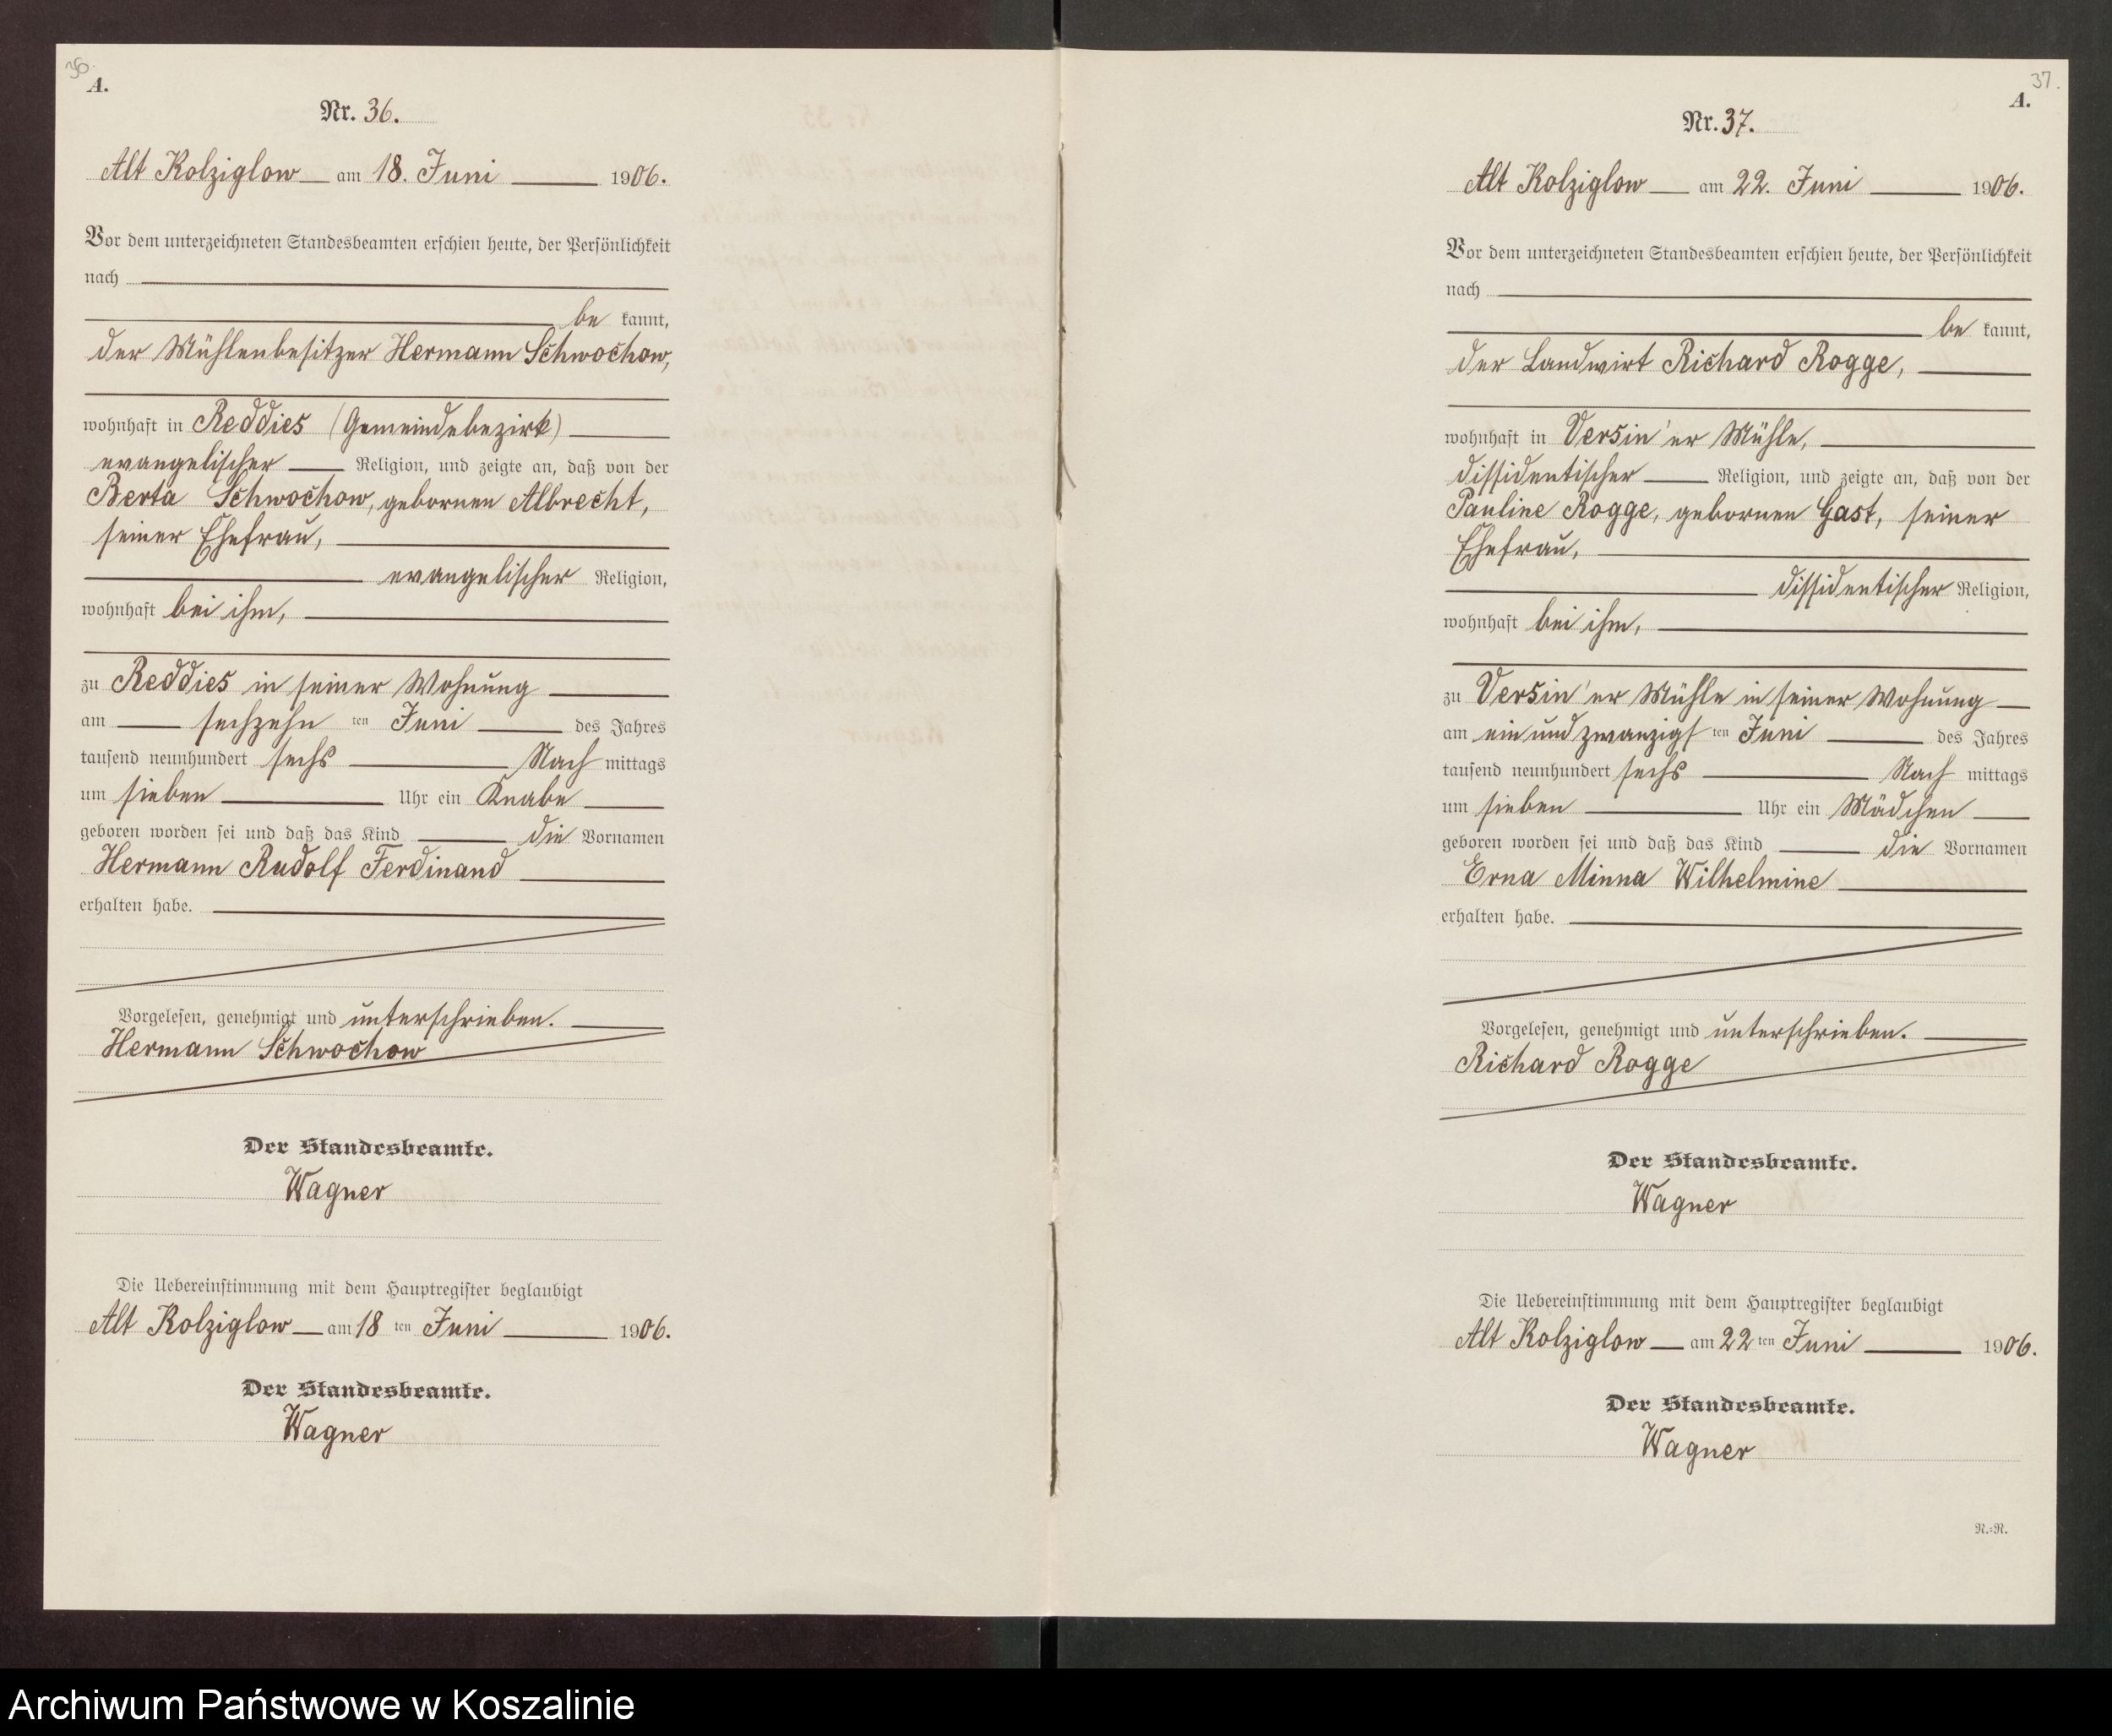 36.
A.
Nr. 36.
Alt Kolziglow am 18. Juni 1906.
Vor dem unterzeichneten Standesbeamten erschien heute, der Persönlichkeit
nach
be kannt,
der Mühlenbesitzer Hermann Schwochow,
wohnhaft in Reddies (Gemeindebezirk)
evangelischer Religion, und zeigte an, daß von der
Berta Schwochow, gebornen Albrecht,
seiner Ehefrau,
evangelischer Religion,
wohnhaft bei ihm,
zu Reddies in seiner Wohnung
am sechzehn ten Juni des Jahres
tausend neunhundert sechs Nach mittags
um sieben Uhr ein Knabe
geboren worden sei und daß das Kind die Vornamen
Hermann Rudolf Ferdinand
erhalten habe.
Vorgelesen, genehmigt und unterschrieben.
Hermann Schwochow
Der Standesbeamte.
Wagner
Die Uebereinstimmung mit dem Hauptregister beglaubigt
Alt Kolziglow am 18 ten Juni 1906.
Der Standesbeamte.
Wagner
37.
A.
Nr. 37.
Alt Kolziglow am 22. Juni 1906.
Vor dem unterzeichneten Standesbeamten erschien heute, der Persönlichkeit
nach
be kannt,
der Landwirt Richard Rogge,
wohnhaft in Versin'er Mühle,
dissidentischer Religion, und zeigte an, daß von der
Pauline Rogge, gebornen Gast, seiner
Ehefrau,
dissidentischer Religion,
wohnhaft bei ihm,
zu Versin'er Mühle in seiner Wohnung
am ein und zwanzigs ten Juni des Jahres
tausend neunhundert sechs Nach mittags
um sieben Uhr ein Mädchen
geboren worden sei und daß das Kind die Vornamen
Erna Minna Wilhelmine
erhalten habe.
Vorgelesen, genehmigt und unterschrieben.
Richard Rogge
Der Standesbeamte.
Wagner
Die Uebereinstimmung mit dem Hauptregister beglaubigt
Alt Kolziglow am 22 ten Juni 1906.
Der Standesbeamte.
Wagner
N.=R.
Archiwum Państwowe w Koszalinie